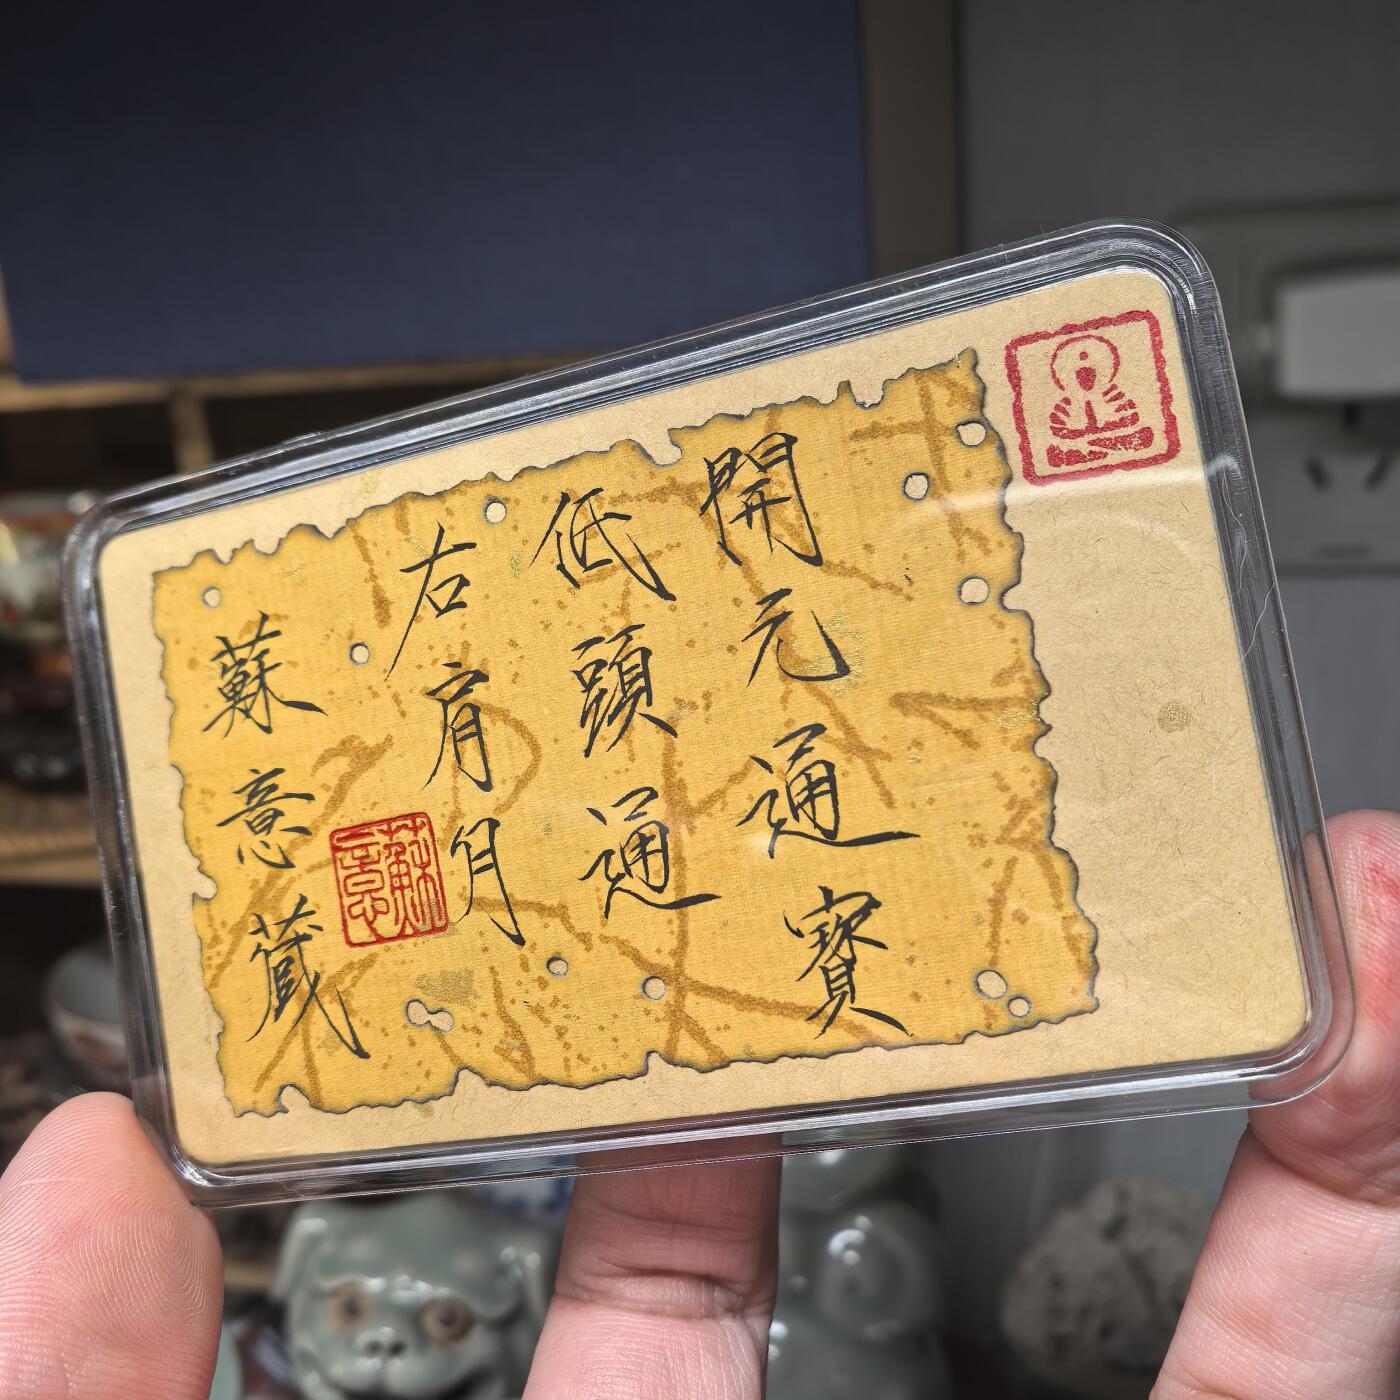 開元通寶
低頭通
右肓月
蘇意藏
蘇意